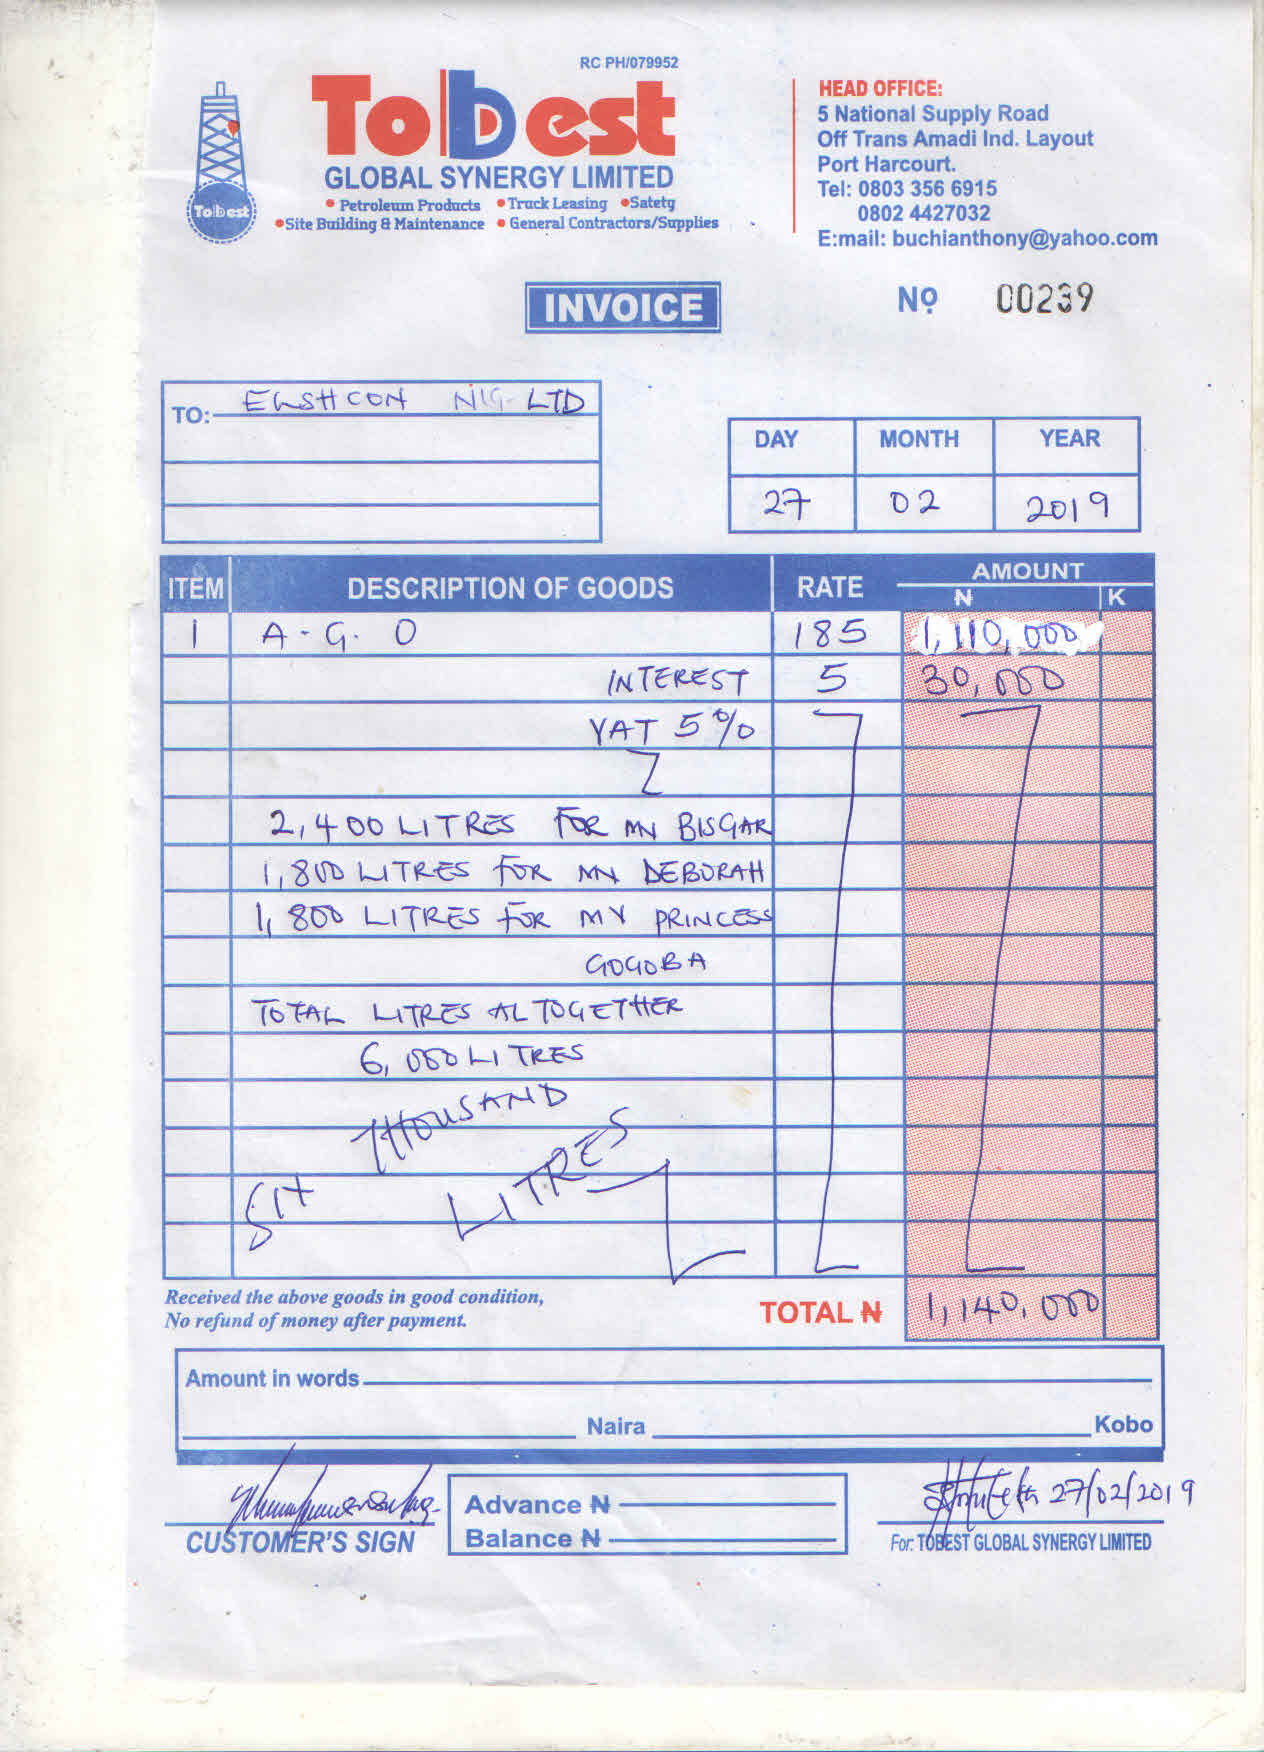 RC PH/079952
Tobest
GLOBAL SYNERGY LIMITED
• Petroleum Products • Truck Leasing • Safety
• Site Building & Maintenance • General Contractors/Supplies
Tobest
HEAD OFFICE:
5 National Supply Road
Off Trans Amadi Ind. Layout
Port Harcourt.
Tel: 0803 356 6915
0802 4427032
E:mail: buchianthony@yahoo.com
INVOICE
No 00239
TO: ELSHCON NIG. LTD
DAY MONTH YEAR
27 02 2019
ITEM DESCRIPTION OF GOODS RATE AMOUNT
₦ K
1 A.G.O 185 1,110,000
INTEREST 5 30,000
VAT 5%
2,400 LITRES FOR MV BISGAR
1,800 LITRES FOR MV DEBORAH
1,800 LITRES FOR MV PRINCESS
GOGOBA
TOTAL LITRES ALTOGETHER
6,000 LITRES
SIX THOUSAND LITRES
Received the above goods in good condition,
No refund of money after payment.
TOTAL ₦ 1,140,000
Amount in words
Naira Kobo
27/02/2019
CUSTOMER'S SIGN
Advance ₦
Balance ₦
For: TOBEST GLOBAL SYNERGY LIMITED